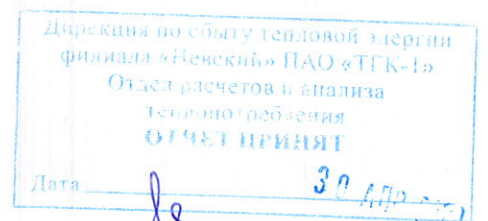 Дирекция по сбыту тепловой энергии
филиала «Невский» ПАО «ТГК-1»
Отдел расчетов и анализа
теплопотребления
ОТЧЕТ ПРИНЯТ
Дата 30 АПР